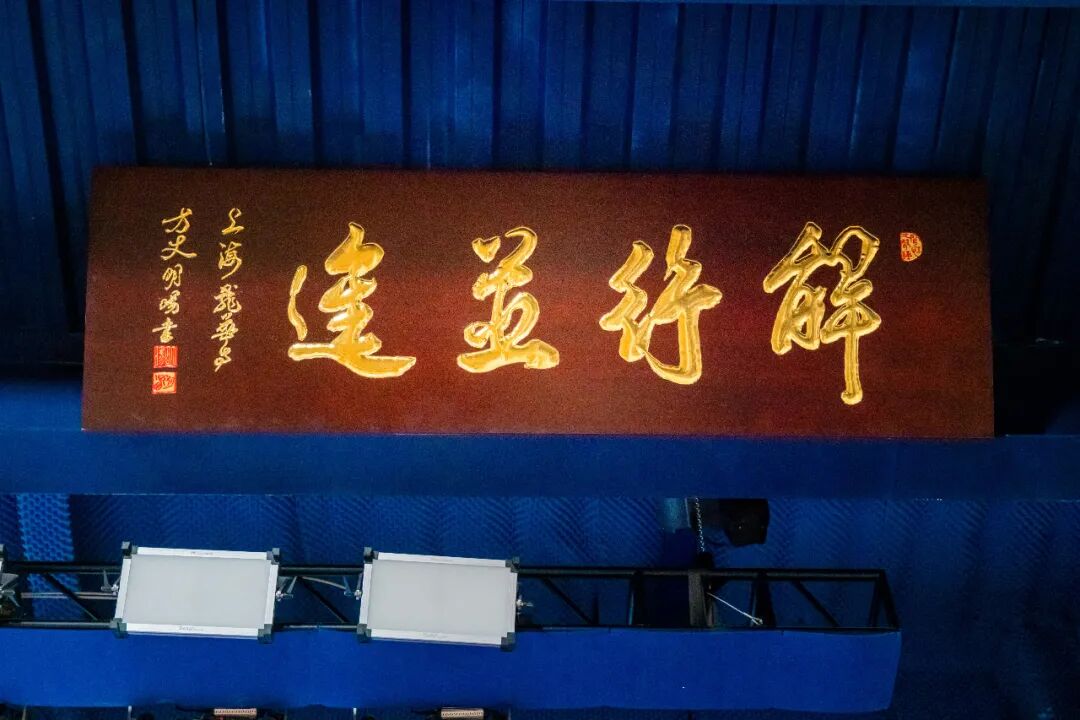 解行並進
上海龍華寺
方丈明暘書